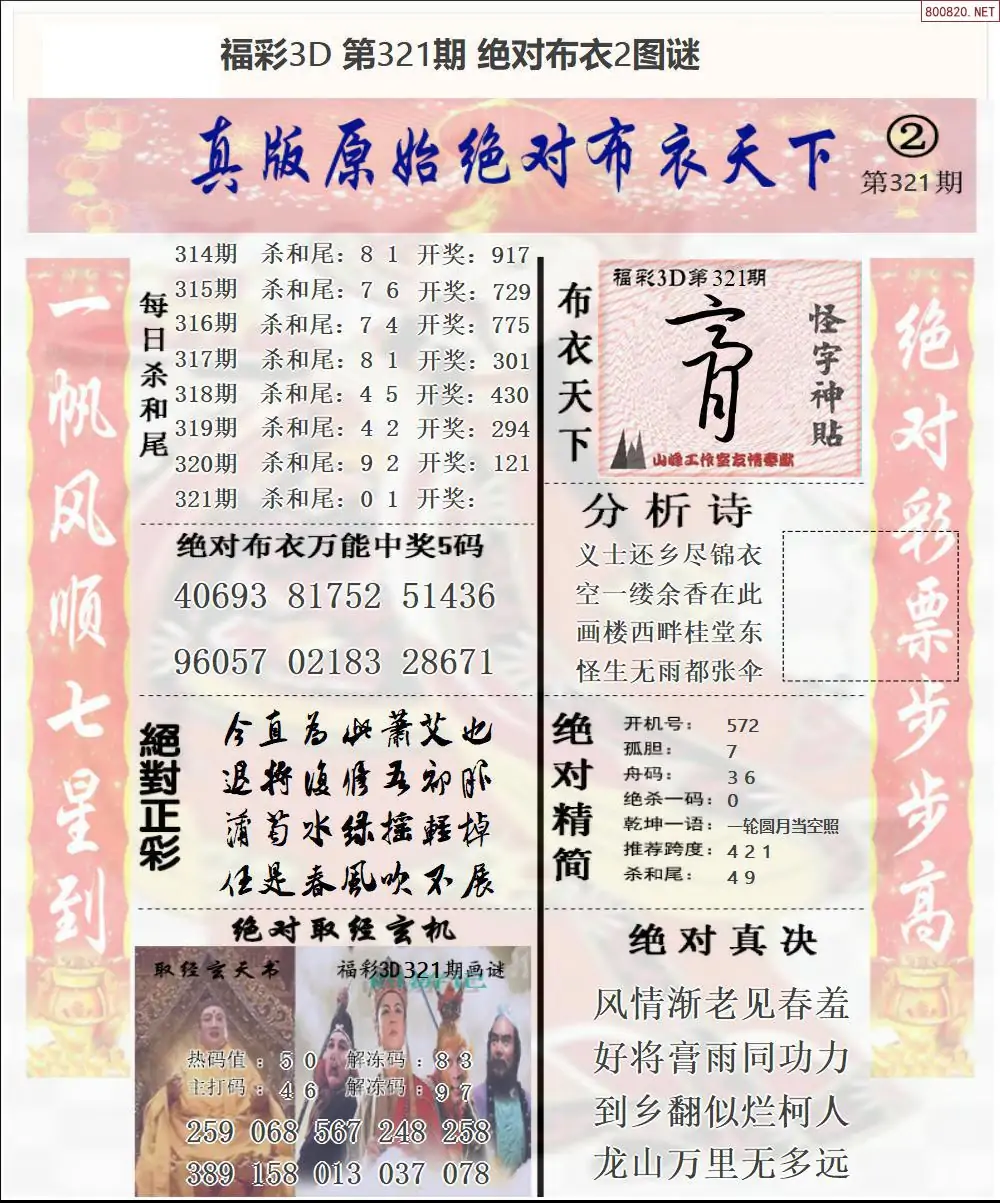 800820.NET
福彩3D 第321期 绝对布衣2图谜
真版原始绝对布衣天下
②
第321期
一帆风顺七星到
每日杀和尾
314期 杀和尾：8 1 开奖：917
315期 杀和尾：7 6 开奖：729
316期 杀和尾：7 4 开奖：775
317期 杀和尾：8 1 开奖：301
318期 杀和尾：4 5 开奖：430
319期 杀和尾：4 2 开奖：294
320期 杀和尾：9 2 开奖：121
321期 杀和尾：0 1 开奖：
绝对布衣万能中奖5码
40693 81752 51436
96057 02183 28671
絕對正彩
今直為此蕭艾也
退将復修吾初服
蒲萄水绿摇輕棹
任是春風吹不展
绝对取经玄机
取经玄天书
福彩3D321期画谜
热码值：5 0 解冻码：8 3
主打码：4 6 解冻码：9 7
259 068 567 248 258
389 158 013 037 078
布衣天下
福彩3D第321期
怪字神贴
山峰工作室友情奉献
分析诗
义士还乡尽锦衣
空一缕余香在此
画楼西畔桂堂东
怪生无雨都张伞
绝对精简
开机号：572
孤胆：7
舟码：3 6
绝杀一码：0
乾坤一语：一轮圆月当空照
推荐跨度：4 2 1
杀和尾：4 9
绝对真决
风情渐老见春羞
好将膏雨同功力
到乡翻似烂柯人
龙山万里无多远
绝对彩票步步高